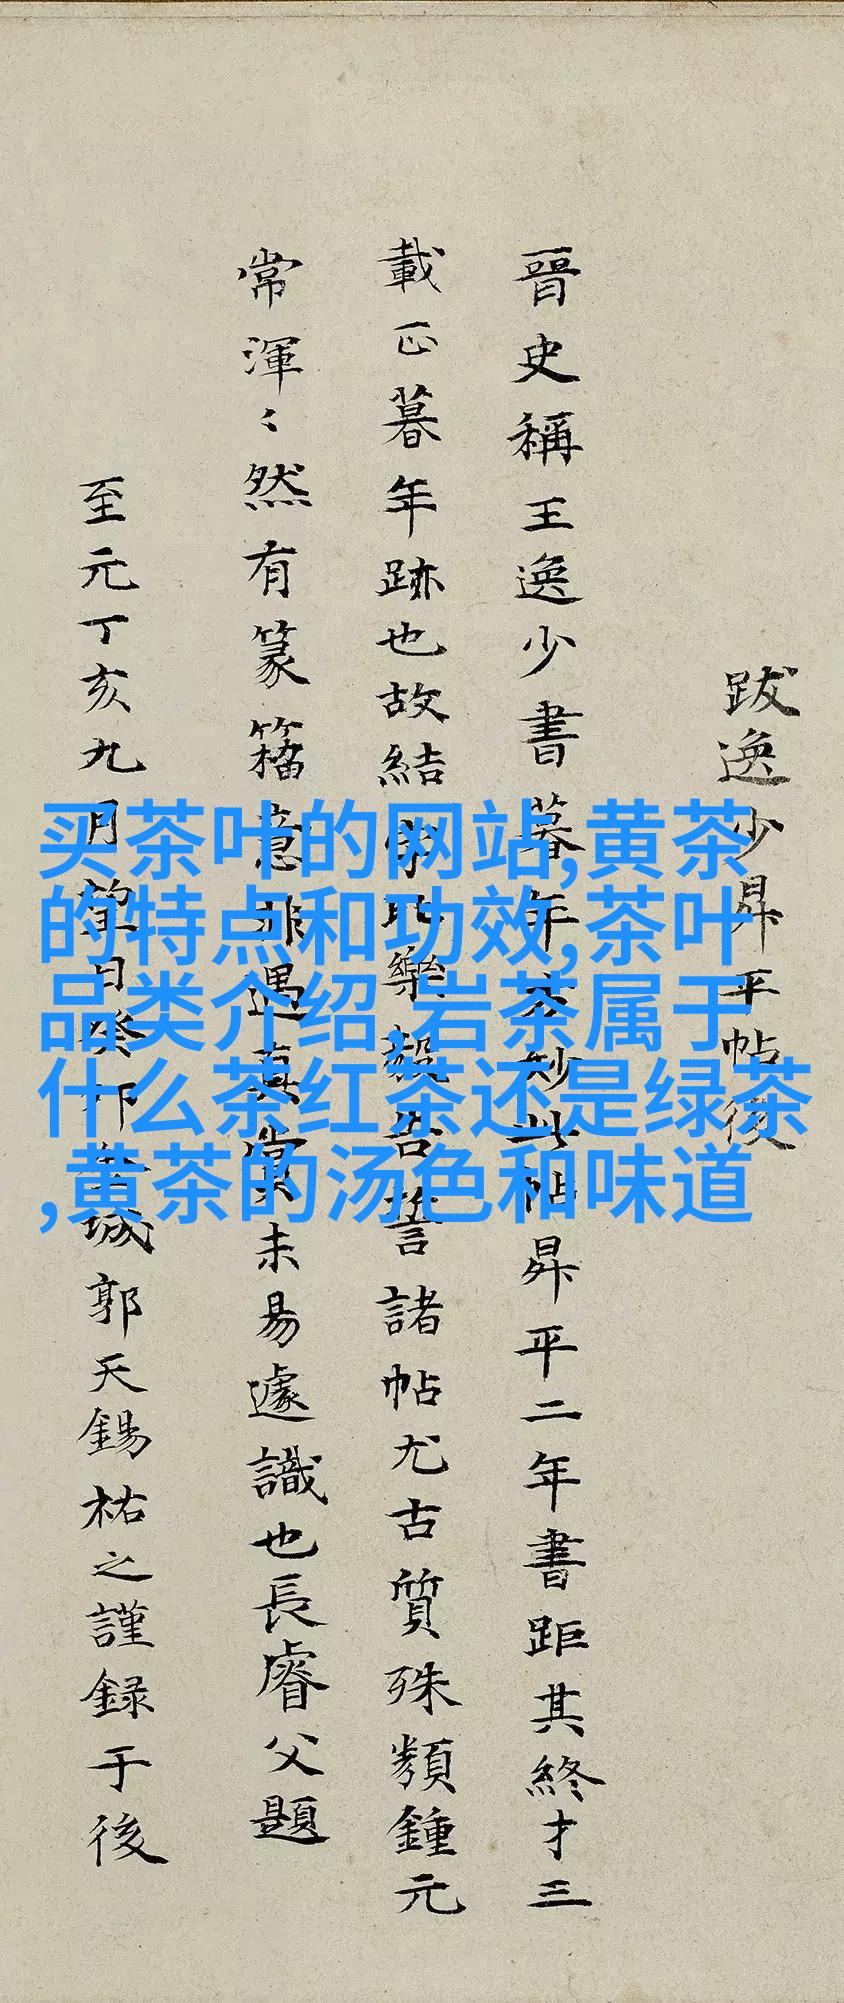 跋逸少昇平帖後
晉史稱王逸少書暮年方妙此帖昇平二年書距其終才三
載正暮年跡也故結字比樂毅告誓諸帖尤古質殊類鍾元
常渾〻然有篆籀意非遇真賞未易遽識也長睿父題
至元丁亥九月望日癸卯金城郭天錫祐之謹録于後
买茶叶的网站,黄茶
的特点和功效,茶叶
品类介绍,岩茶属于
什么茶红茶还是绿茶
,黄茶的汤色和味道